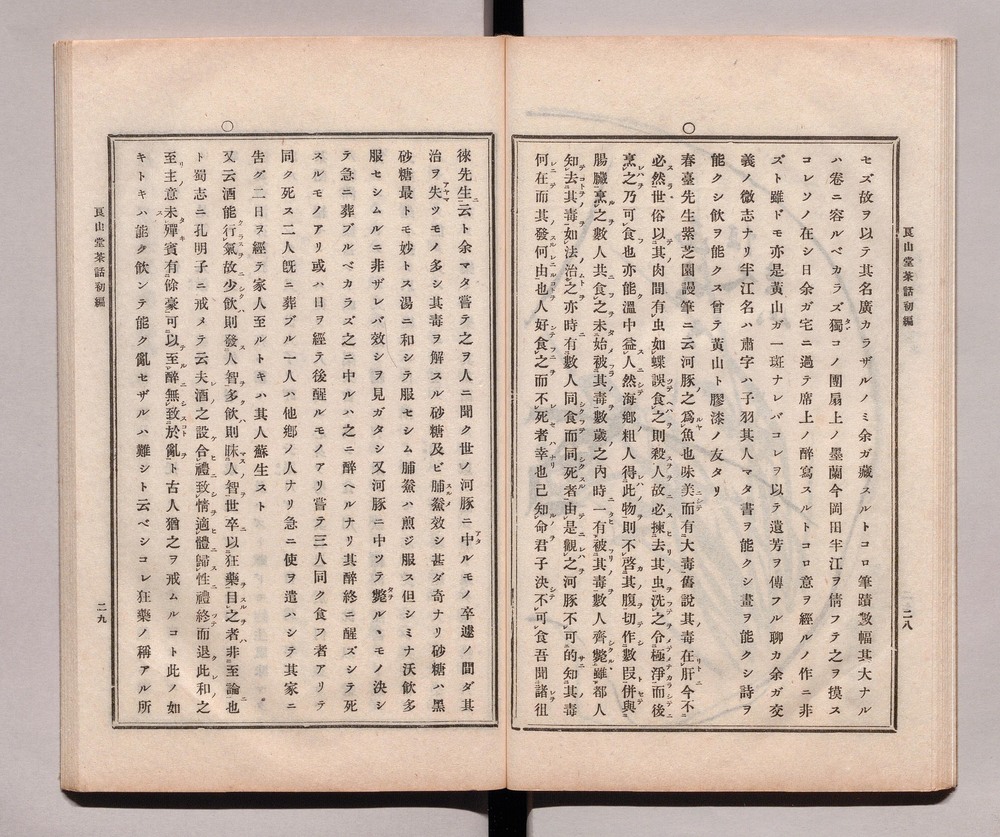 莨山堂茶話初編
二八
セズ故ヲ以テ其名廣カラザルノミ余ガ藏スルトコロ筆蹟數幅其大ナル
ハ卷ニ容ルベカラズ獨コノ團扇上ノ墨蘭今岡田半江ヲ倩フテ之ヲ摸ス
コレソノ在シ日余ガ宅ニ過テ席上ノ醉寫スルトコロ意ヲ經ルノ作ニ非
ズト雖ドモ亦是黃山ガ一斑ナレバコレヲ以テ遺芳ヲ傳フル聊カ余ガ交
義ノ微志ナリ半江名ハ肅字ハ子羽其人マタ書ヲ能クシ畫ヲ能クシ詩ヲ
能クシ飲ヲ能クス曾テ黃山ト膠漆ノ友タリ
○
春臺先生紫芝園謾筆ニ云河豚之爲魚也味美而有大毒舊說其毒在肝今不
必然世俗以其肉間有虫如蝶誤食之則殺人故必揀去其虫洗之令極淨而後
烹之乃可食也亦能溫中益人然海鄉粗人得此物則不啓其腹切作數段併與
腸臟烹之數人共食之未始被其毒數歲之內時一有被其毒數人齊斃雖都人
知去其毒如法治之亦時有數人同食而同死者由是觀之河豚不可的知其毒
何在而其發何由也人好食之而不死者幸也己知命君子決不可食吾聞諸徂
徠先生云ト余マタ嘗テ之ヲ人ニ聞ク世ノ河豚ニ中ルモノ卒遽ノ間ダ其
治ヲ失ツモノ多シ其毒ヲ解スル砂糖及ビ鯆鮝效シ甚ダ奇ナリ砂糖ハ黑
砂糖最トモ妙トス湯ニ和シテ服セシム鯆鮝ハ煎ジ服ス但シミナ沃飲多
服セシムルニ非ザレバ效シヲ見ガタシ又河豚ニ中ツテ斃ル、モノ決シ
テ急ニ葬ブルベカラズ之ニ中ルハ之ニ醉ヘルナリ其醉終ニ醒ズシテ死
スルモノアリ或ハ日ヲ經テ後醒ルモノアリ嘗テ三人同ク食フ者アリテ
同ク死ス二人旣ニ葬ブル一人ハ他鄉ノ人ナリ急ニ使ヲ遣ハシテ其家ニ
告グ二日ヲ經テ家人至ルトキハ其人蘇生スト
○
又云酒能行氣故少飲則發人智多飲則昧人智世卒以狂藥目之者非至論也
ト蜀志ニ孔明子ニ戒メテ云夫酒之設合禮致情適體歸性禮終而退此和之
至主意未殫賓有餘豪可以至醉無致於亂ト古人猶之ヲ戒ムルコト此ノ如
キトキハ能ク飲ンテ能ク亂セザルハ難シト云ベシコレ狂藥ノ稱アル所
莨山堂茶話初編
二九